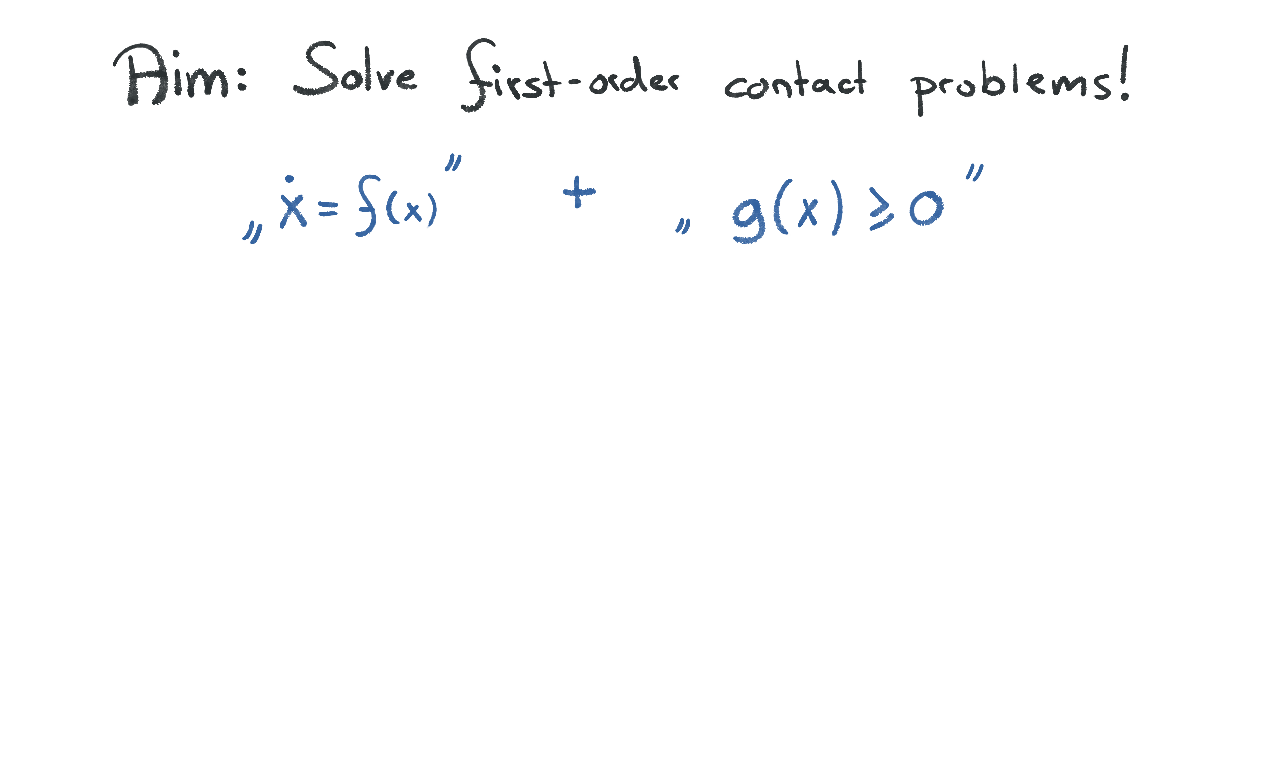 Aim: Solve first-order contact problems!
„ẋ = f(x)” + „g(x) ⩾ 0”